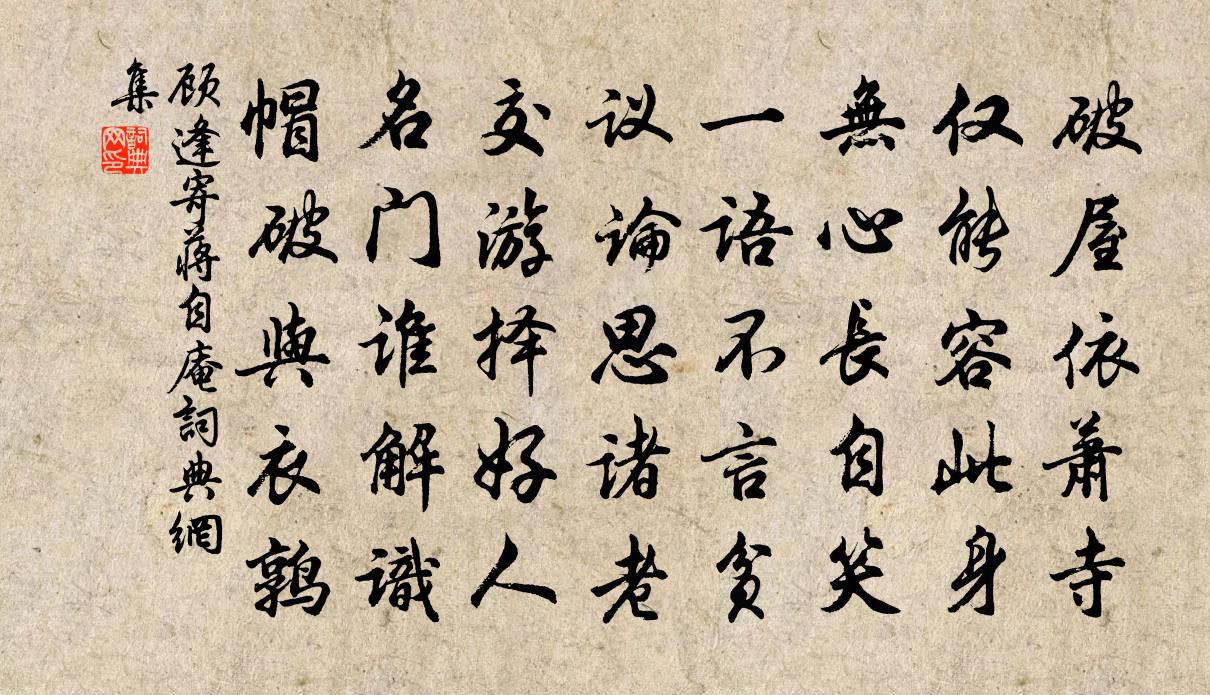 破屋依萧寺
仅能容此身
無心長自笑
一语不言贫
议論思诸老
交游择好人
名门谁解識
帽破與衣鹑
顾逢寄蒋自庵詞典網
集
詞典
网印